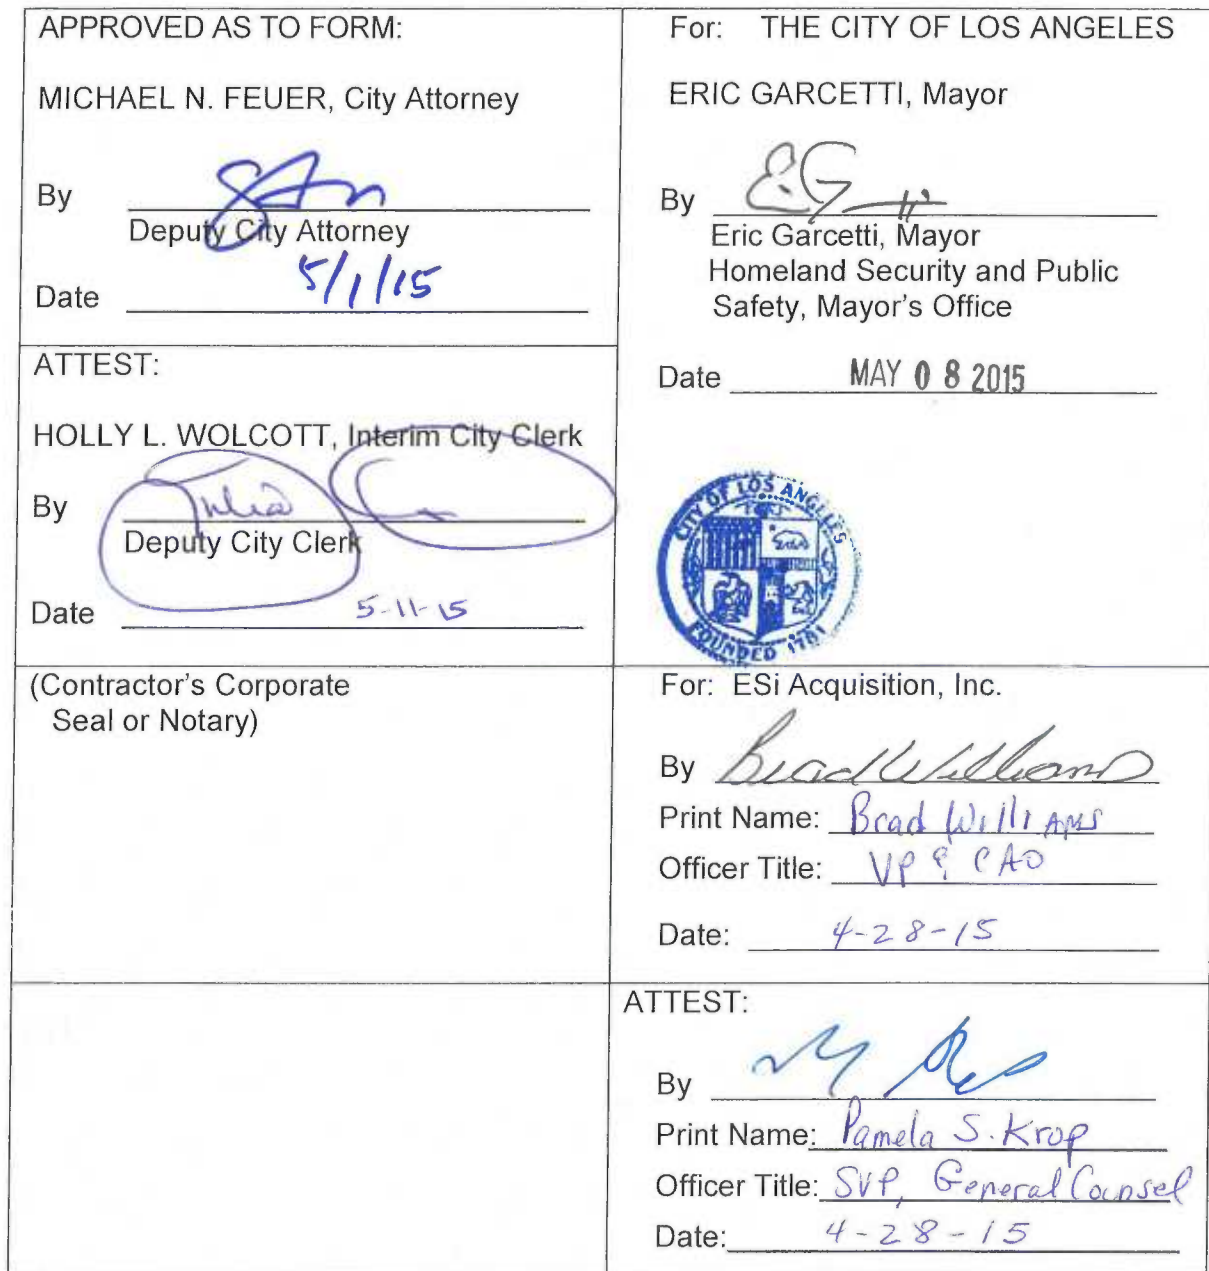 APPROVED AS TO FORM:
MICHAEL N. FEUER, City Attorney
By
Deputy City Attorney
Date 5/1/15
ATTEST:
HOLLY L. WOLCOTT, Interim City Clerk
By Julia
Deputy City Clerk
Date 5-11-15
For: THE CITY OF LOS ANGELES
ERIC GARCETTI, Mayor
By
Eric Garcetti, Mayor
Homeland Security and Public
Safety, Mayor's Office
Date MAY 08 2015
CITY OF LOS ANGELES
FOUNDED 1781
(Contractor's Corporate
Seal or Notary)
For: ESi Acquisition, Inc.
By Brad Williams
Print Name: Brad Williams
Officer Title: VP & CAO
Date: 4-28-15
ATTEST:
By
Print Name: Pamela S. Krop
Officer Title: SVP, General Counsel
Date: 4-28-15